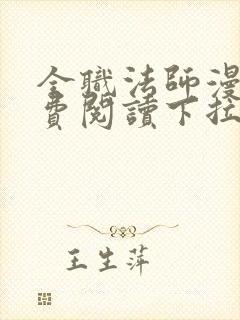 全職法師漫
費閱讀下拉
王生萍